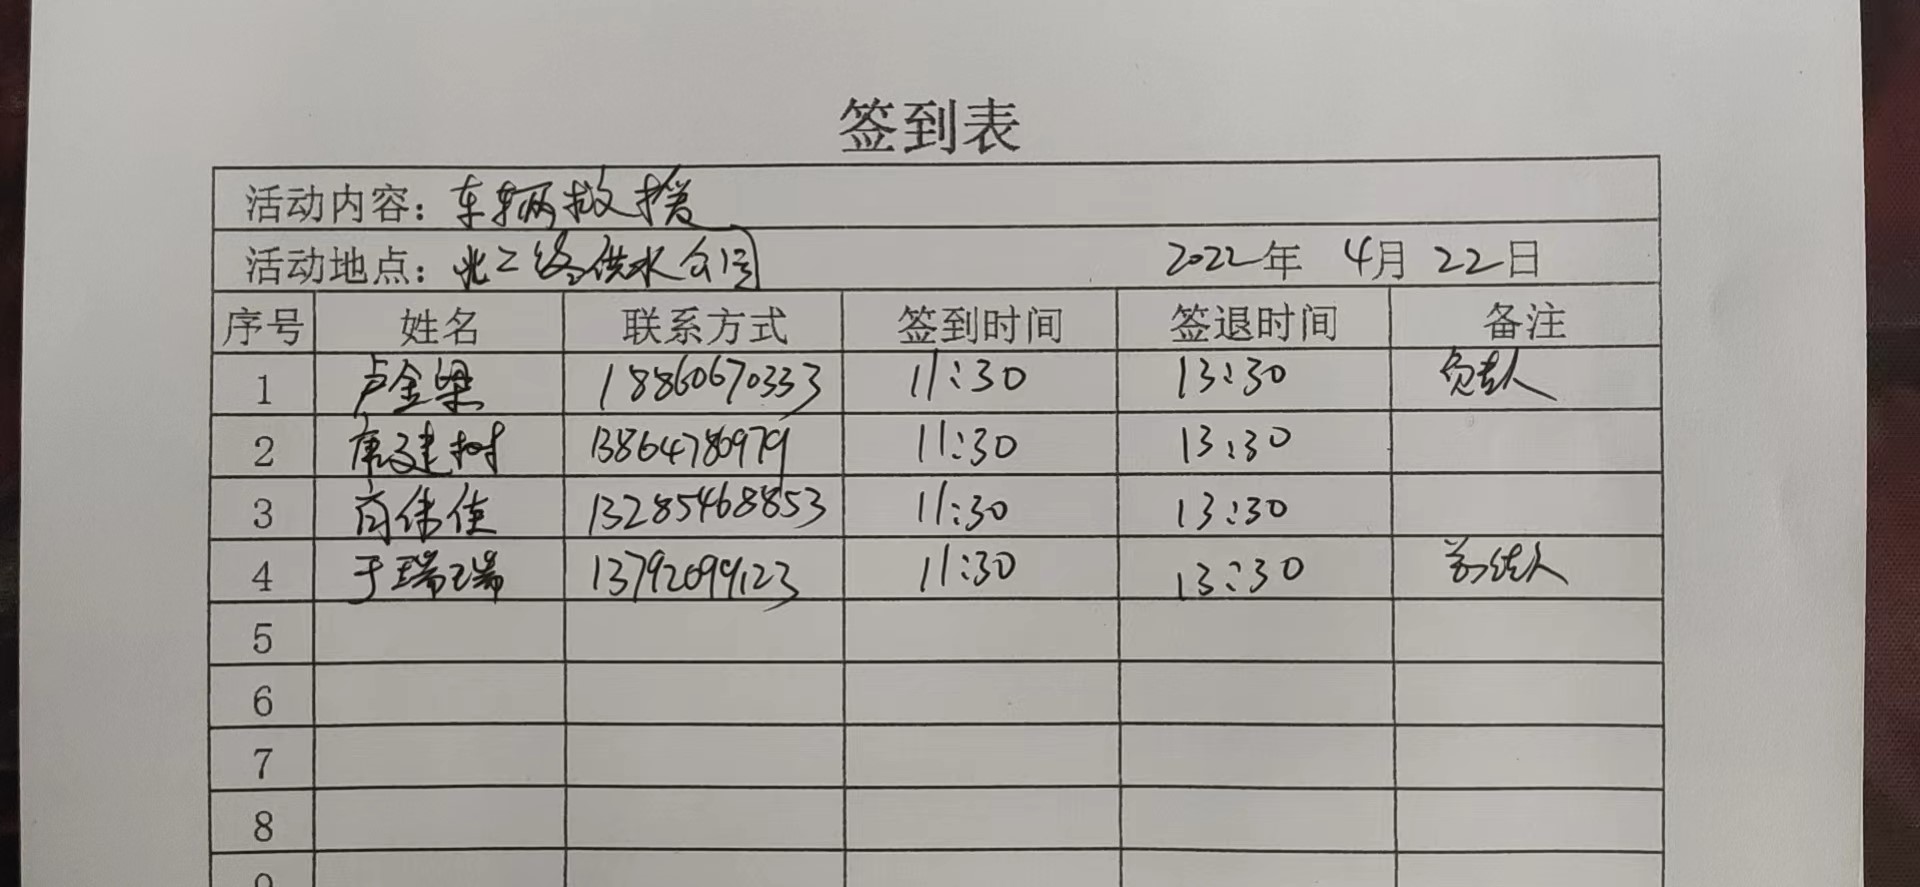 签到表
活动内容：车辆救援
活动地点：北二路供水公司 2022年 4月 22日
序号 姓名 联系方式 签到时间 签退时间 备注
1 卢金梁 18860670333 11:30 13:30 负责人
2 唐建树 13864780979 11:30 13:30
3 肖伟佳 13285468853 11:30 13:30
4 于瑞瑞 13792099123 11:30 13:30
5
6
7
8
9